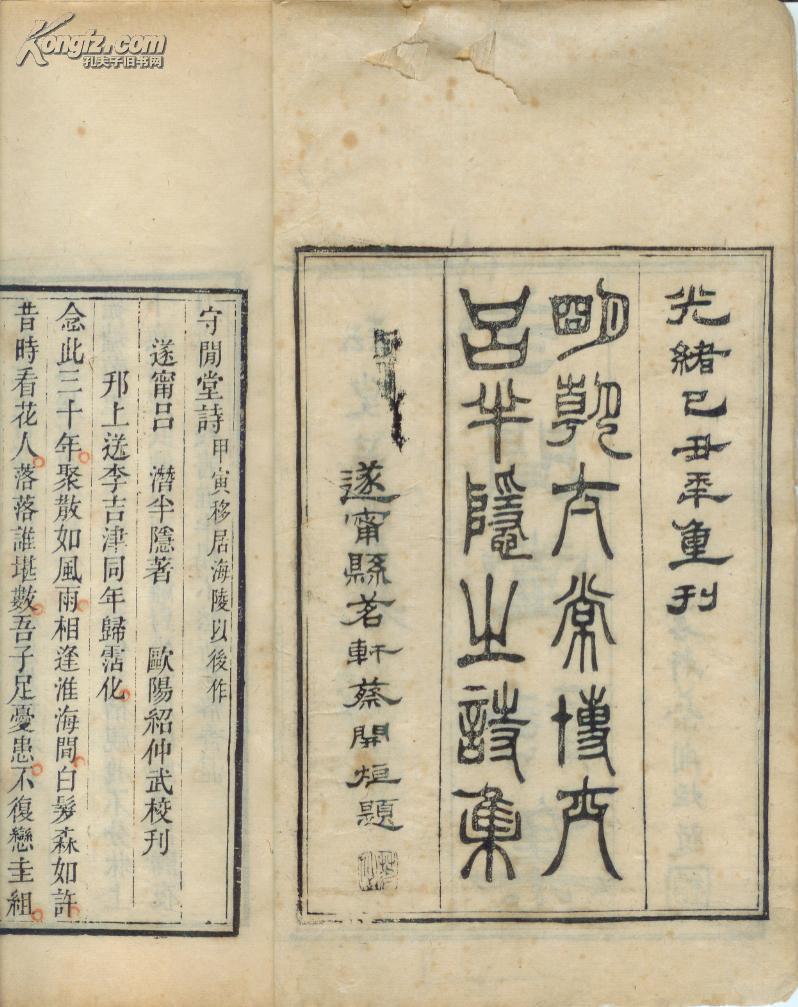 Kongfz.com
孔夫子旧书网
光緒己丑年重刊
明朝太常博士
呂半隱之詩集
遂甯縣茗軒蔡開烜題
守閒堂詩甲寅移居海陵以後作
遂甯呂 潛半隱著 歐陽紹仲武校刊
邗上送李吉津同年歸霑化
念此三十年聚散如風雨相逢淮海間白髮森如許
昔時看花人落落誰堪數吾子足憂患不復戀圭組